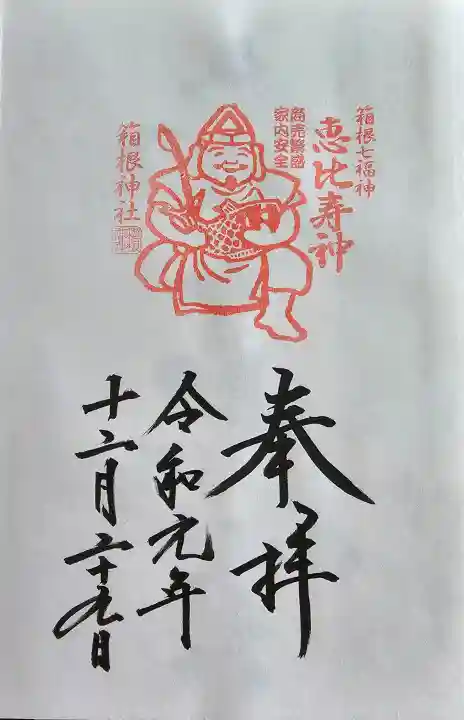 箱根七福神
恵比寿神
商売繁盛
家内安全
箱根神社
奉拝
令和元年
十二月二十九日